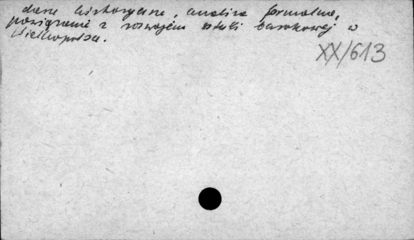 dane historyczne, analiza formalna,
powiązania z rozwojem sztuki barokowej w
Wielkopolsce.
XX/613